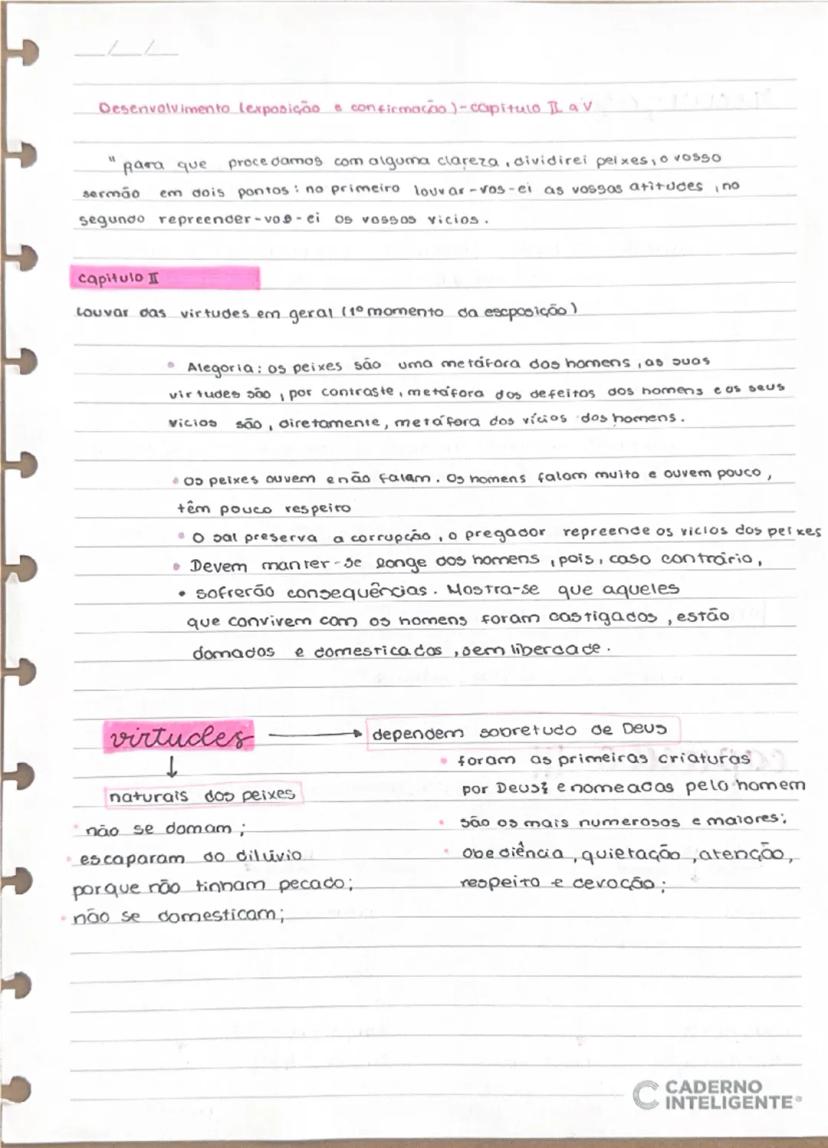 __/__/__
Desenvolvimento (exposição e confirmacão) - capitulo II a V
" para que procedamos com alguma clareza, dividirei peixes, o vosso
sermão em dois pontos: no primeiro louvar-vos-ei as vossas atitudes, no
segundo repreender-vos-ei os vossos vicios.
capitulo II
Louvar das virtudes em geral (1º momento da escposição)
• Alegoria: os peixes são uma metáfora dos homens, as suas
virtudes são, por contraste, metáfora dos defeitos dos homens e os seus
vicios são, diretamente, metáfora dos vícios dos homens.
• Os peixes ouvem e não falam. Os homens falam muito e ouvem pouco,
têm pouco respeiro
• O sal preserva a corrupção, o pregador repreende os vicios dos peixes
• Devem manter-se longe dos homens, pois, caso contrário,
• sofrerão consequências. Mostra-se que aqueles
que convivem com os homens foram castigados, estão
domados e domesticados, sem liberdade.
virtudes → dependem sobretudo de Deus
↓
• foram as primeiras criaturas
naturais dos peixes
por Deus; e nomeadas pelo homem
• não se domam;
• são os mais numerosos e maiores;
• escaparam do dilúvio
• obediência, quietação, atenção,
porque não tinham pecado;
respeito e devoção;
• não se domesticam;
CADERNO
INTELIGENTE®